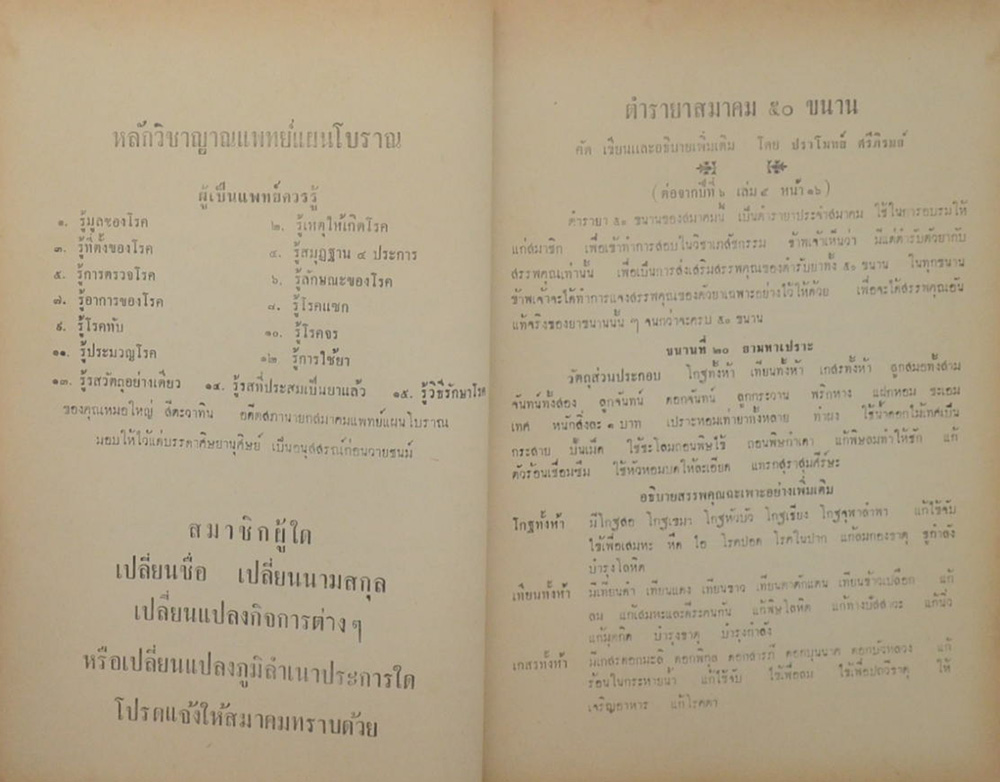 หลักวิชาญาณแพทย์แผนโบราณ
ผู้เป็นแพทย์ควรรู้
๑. รู้มูลของโรค ๒. รู้เหตุให้เกิดโรค
๓. รู้ที่ตั้งของโรค ๔. รู้สมุฏฐาน ๔ ประการ
๕. รู้การตรวจโรค ๖. รู้ลักษณะของโรค
๗. รู้อาการของโรค ๘. รู้โรคแซก
๙. รู้โรคทับ ๑๐. รู้โรคจร
๑๑. รู้ประมวญโรค ๑๒. รู้การใช้ยา
๑๓. รู้รสวัตถุอย่างเดียว ๑๔. รู้รสที่ประสมเป็นยาแล้ว ๑๕. รู้วิธีรักษาโรค
ของคุณหมอใหญ่ สีตะวาทิน อดีตสภานายกสมาคมแพทย์แผนโบราณ
มอบให้ไว้แด่บรรดาศิษยานุศิษย์ เป็นอนุสสรณ์ก่อนวายชนม์
สมาชิกผู้ใด
เปลี่ยนชื่อ เปลี่ยนนามสกุล
เปลี่ยนแปลงกิจการต่าง ๆ
หรือเปลี่ยนแปลงภูมิลำเนาประการใด
โปรดแจ้งให้สมาคมทราบด้วย
ตำรายาสมาคม ๕๐ ขนาน
คัด เรียนและอธิบายเพิ่มเติม โดย ปราโมทย์ ศรีภิรมย์
(ต่อจากปีที่ ๖ เล่ม ๕ หน้า ๑๖)
ตำรายา ๕๐ ขนานของสมาคมนี้ เป็นตำรายาประจำสมาคม ใช้ในการอบรมให้
แก่สมาชิก เพื่อเข้าทำการสอบในวิชาเภสัชกรรม ข้าพเจ้าเห็นว่า มีแต่ตำรับตัวยากับ
สรรพคุณเท่านั้น เพื่อเป็นการส่งเสริมสรรพคุณของตำรับยาทั้ง ๕๐ ขนาน ในทุกขนาน
ข้าพเจ้าจะได้ทำการแจงสรรพคุณของตัวยาเฉพาะอย่างไว้ให้ด้วย เพื่อจะได้สรรพคุณอัน
แท้จริงของยาขนานนั้น ๆ จนกว่าจะครบ ๕๐ ขนาน
ขนานที่ ๒๐ ยามหาเปราะ
วัตถุส่วนประกอบ โกฐทั้งห้า เทียนทั้งห้า เกสรทั้งห้า ลูกสมอทั้งสาม
จันทน์ทั้งสอง ลูกจันทน์ ดอกจันทน์ ลูกกระวาน พริกหาง แฝกหอม ชะเอม
เทศ หนักสิ่งละ ๑ บาท เปราะหอมเท่ายาทั้งหลาย ทำผง ใช้น้ำดอกไม้เทศเป็น
กระสาย ปั้นเม็ด ใช้ชะโลมถอนพิษไข้ ถอนพิษกำเดา แก้พิษลมทำให้ชัก แก้
ตัวร้อนเชื่อมซึม ใช้หัวหอมบดให้ละเอียด แทรกสุราสุมศีร์ษะ
อธิบายสรรพคุณฉะเพาะอย่างเพิ่มเติม
โกฐทั้งห้า มีโกฐสอ โกฐเขมา โกฐหัวบัว โกฐเชียง โกฐจุฬาลำพา แก้ไข้จับ
ไข้เพื่อเสมหะ หืด ไอ โรคปอด โรคในปาก แก้ลมกองธาตุ ชูกำลัง
บำรุงโลหิต
เทียนทั้งห้า มีเทียนดำ เทียนแดง เทียนขาว เทียนตาตั๊กแตน เทียนข้าวเปลือก แก้
ลม แก้เสมหะและดีระคนกัน แก้พิษโลหิต แก้ทางปัสสาวะ แก้นิ่ว
แก้มุตกิด บำรุงธาตุ บำรุงกำลัง
เกสรทั้งห้า มีเกสรดอกมะลิ ดอกพิกุล ดอกสารภี ดอกบุนนาค ดอกบัวหลวง แก้
ร้อนในกระหายน้ำ แก้ไข้จับ ไข้เพื่อลม ไข้เพื่อปถวีธาตุ ให้
เจริญอาหาร แก้โรคตา